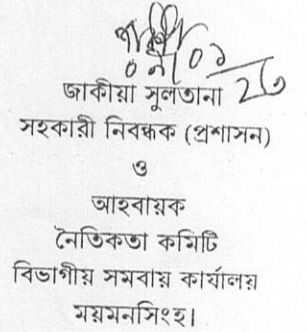 ০৯/০১/২৩
জাকীয়া সুলতানা
সহকারী নিবন্ধক (প্রশাসন)
ও
আহবায়ক
নৈতিকতা কমিটি
বিভাগীয় সমবায় কার্যালয়
ময়মনসিংহ।